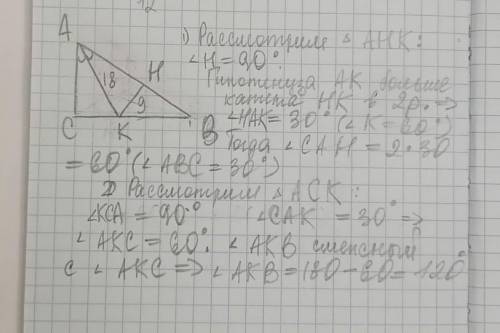 12
A
18
H
9
C
K
B
1) Рассмотрим △ AHK:
∠H = 90°.
Гипотенуза AK больше
катета HK в 2р. =>
∠HAK = 30° (∠K = 60°)
Тогда ∠CAH = 2·30
= 60° (∠ABC = 30°)
2) Рассмотрим △ ACK:
∠KCA = 90° ∠CAK = 30° =>
∠AKC = 60°. ∠AKB смежный
с ∠AKC => ∠AKB = 180 - 60 = 120°